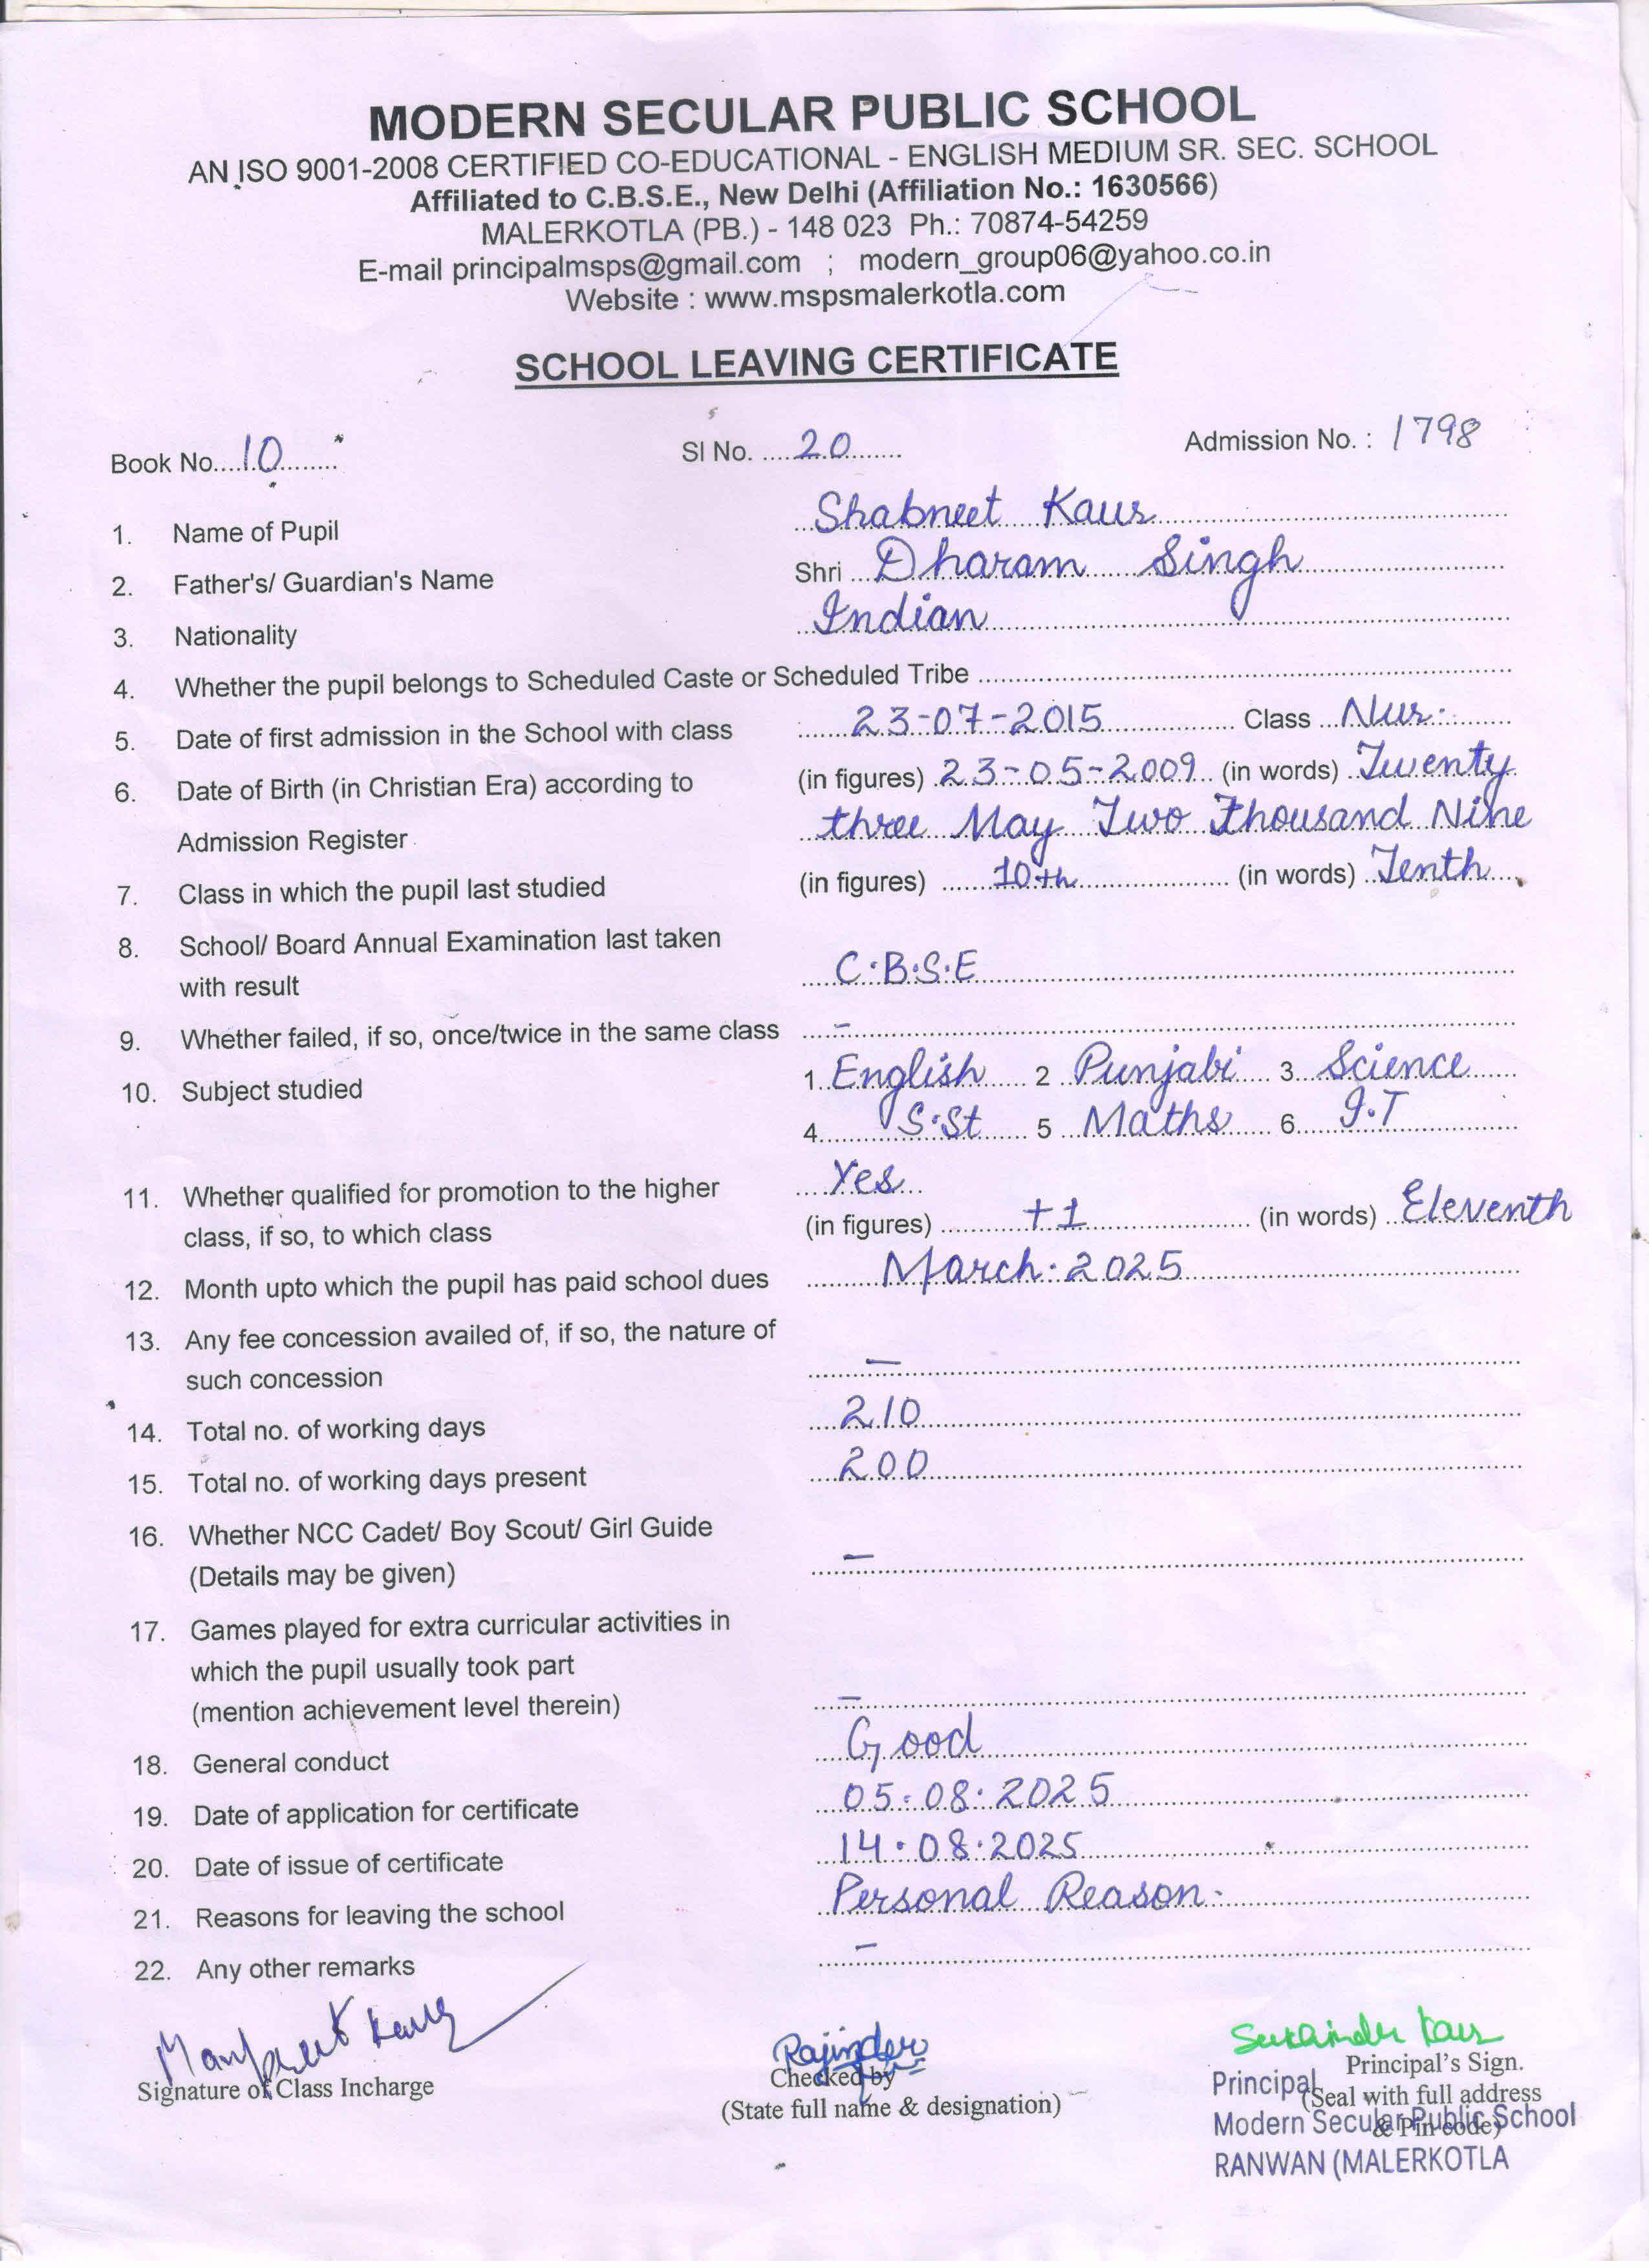 MODERN SECULAR PUBLIC SCHOOL
AN ISO 9001-2008 CERTIFIED CO-EDUCATIONAL - ENGLISH MEDIUM SR. SEC. SCHOOL
Affiliated to C.B.S.E., New Delhi (Affiliation No.: 1630566)
MALERKOTLA (PB.) - 148 023 Ph.: 70874-54259
E-mail principalmsps@gmail.com ; modern_group06@yahoo.co.in
Website : www.mspsmalerkotla.com
SCHOOL LEAVING CERTIFICATE
Book No....10........ Sl No. .....20........ Admission No. : 1798
1. Name of Pupil Shabneet Kaur
2. Father's/ Guardian's Name Shri Dharam Singh
3. Nationality Indian
4. Whether the pupil belongs to Scheduled Caste or Scheduled Tribe
5. Date of first admission in the School with class 23-07-2015 Class Nur.
6. Date of Birth (in Christian Era) according to (in figures) 23-05-2009 (in words) Twenty
Admission Register three May Two Thousand Nine
7. Class in which the pupil last studied (in figures) 10th (in words) Tenth
8. School/ Board Annual Examination last taken
with result C.B.S.E
9. Whether failed, if so, once/twice in the same class -
10. Subject studied 1. English 2 Punjabi 3. Science
4. S.St 5 Maths 6. I.T
11. Whether qualified for promotion to the higher Yes
class, if so, to which class (in figures) +1 (in words) Eleventh
12. Month upto which the pupil has paid school dues March. 2025
13. Any fee concession availed of, if so, the nature of
such concession -
14. Total no. of working days 210
15. Total no. of working days present 200
16. Whether NCC Cadet/ Boy Scout/ Girl Guide
(Details may be given) -
17. Games played for extra curricular activities in
which the pupil usually took part
(mention achievement level therein) -
18. General conduct Good
19. Date of application for certificate 05.08.2025
20. Date of issue of certificate 14.08.2025
21. Reasons for leaving the school Personal Reason.
22. Any other remarks -
Manpreet Kaur Rajinder Sukhinder Kaur
Signature of Class Incharge Checked by Principal's Sign.
(State full name & designation) (Seal with full address
& Pin code)
Principal
Modern Secular Public School
RANWAN (MALERKOTLA